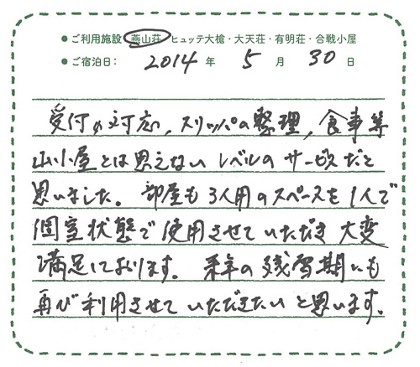 ● ご利用施設 燕山荘 ヒュッテ大槍・大天荘・有明荘・合戦小屋
● ご宿泊日： 2014 年 5 月 30 日
受付の対応，スリッパの整理，食事等
山小屋とは思えないレベルのサービスだと
思いました。部屋も3人用のスペースを1人で
個室状態で使用させていただき大変
満足しております。来年の残雪期にも
再び利用させていただきたいと思います。